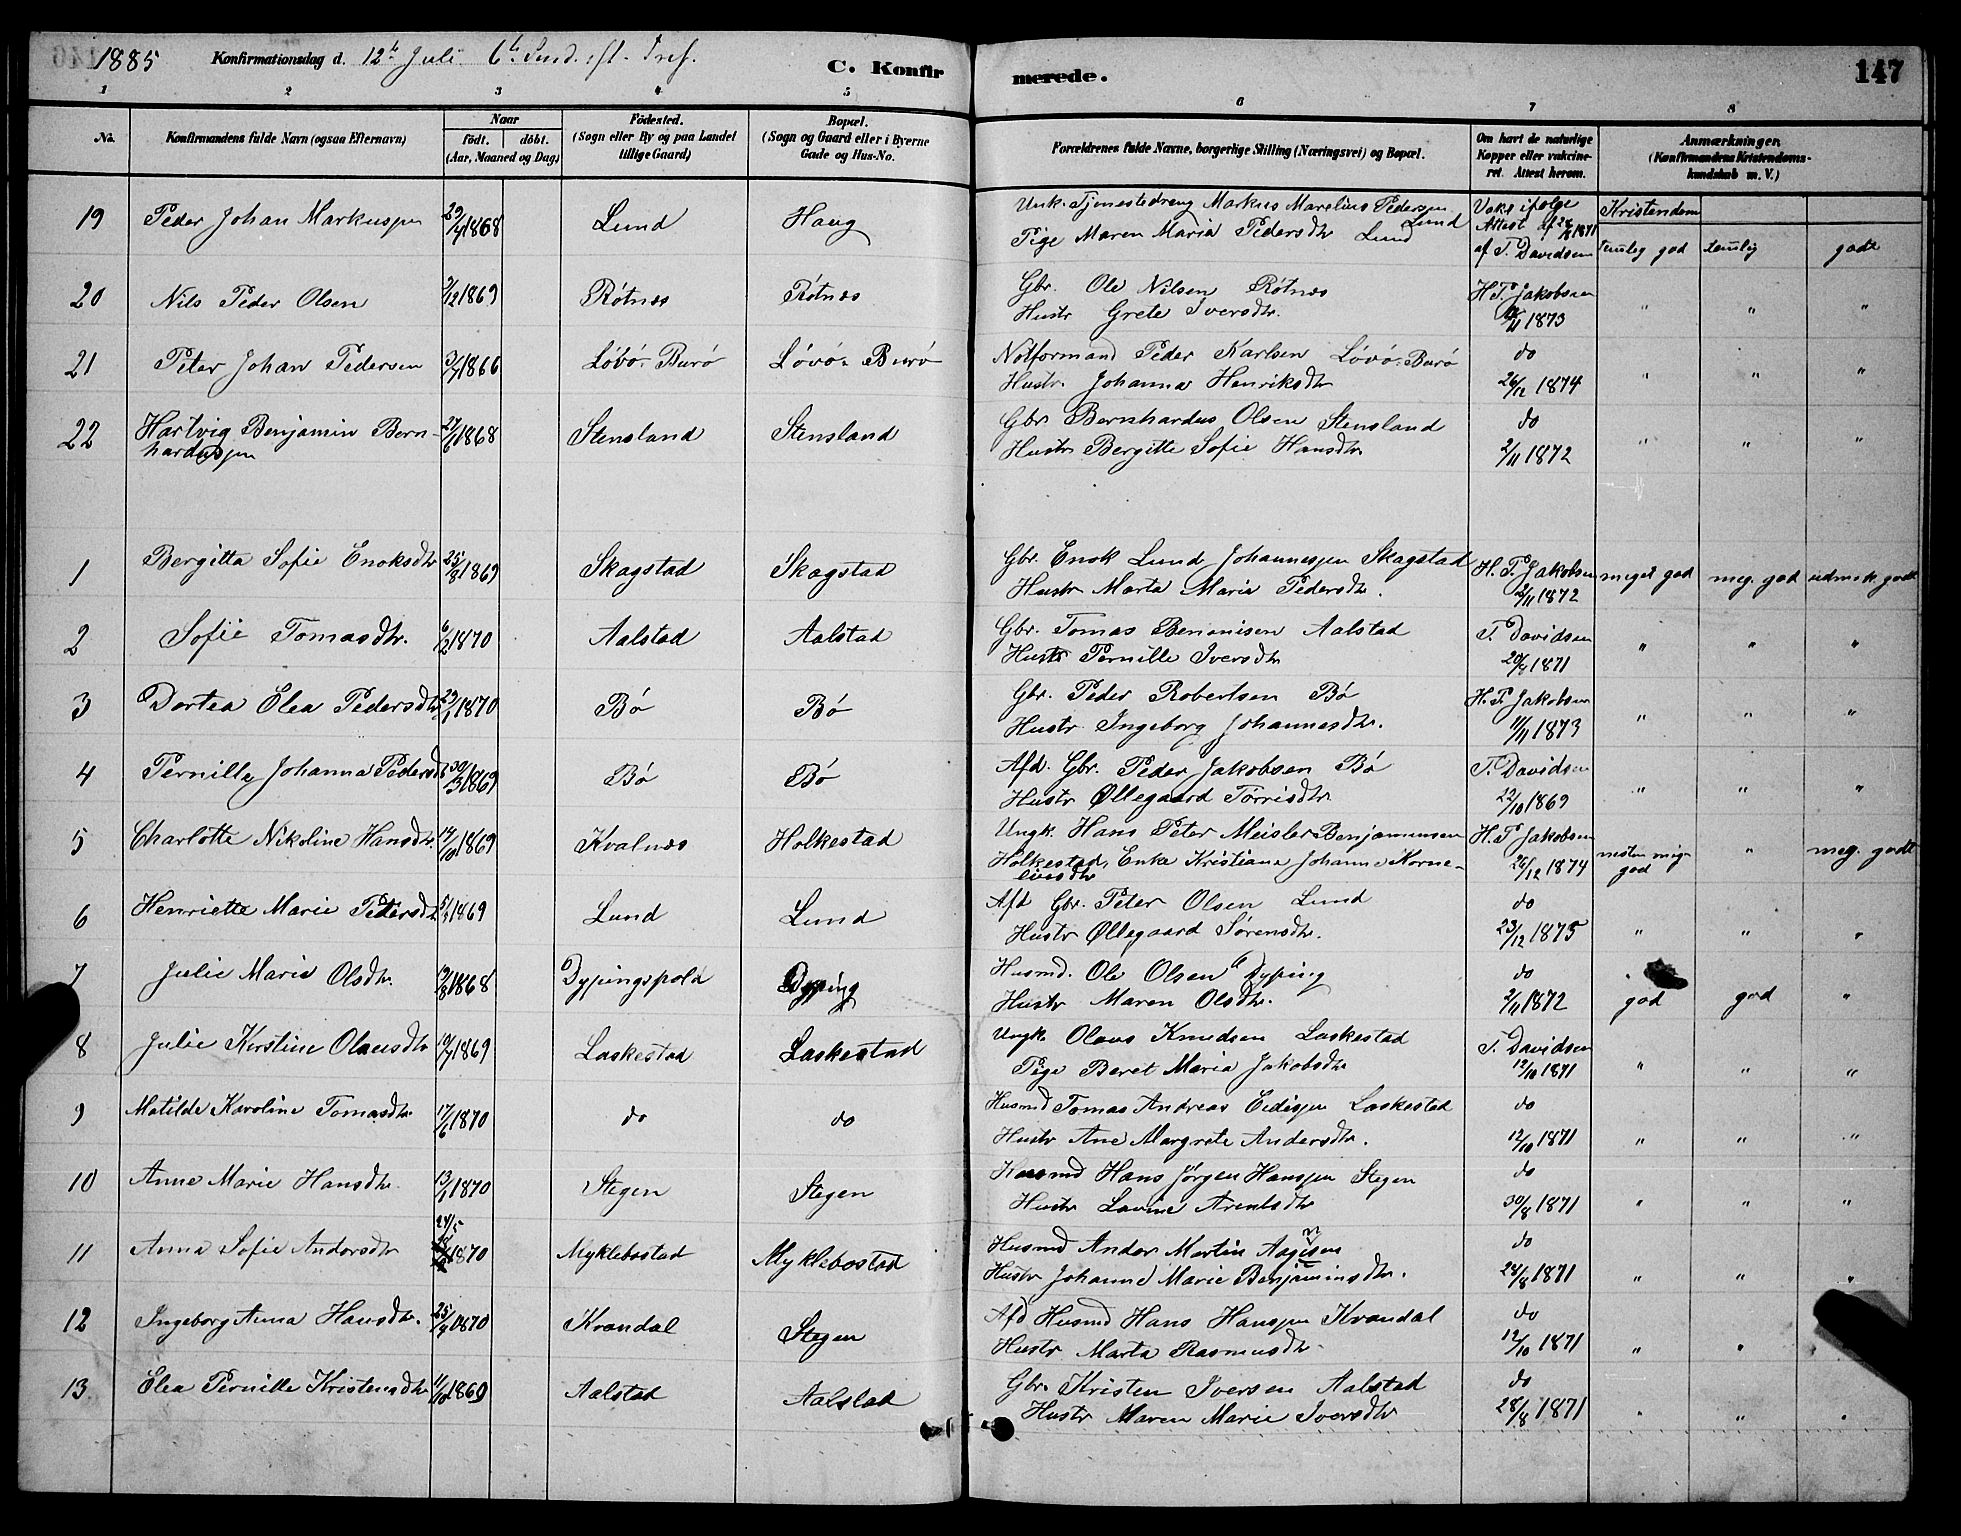 1885 Konfirmationsdag d. 12te Juli 6te Sund. eft. Tref. C. Konfirmerede. 147
1 2 3 4 5 6 7 8
No. Konfirmandens fulde Navn (ogsaa Efternavn) Naar födt. döbt. (Aar, Maaned og Dag) Födested. (Sogn eller By og paa Landet tillige Gaard) Bopæl. (Sogn og Gaard eller i Byerne Gade og Hus-No. Forældrenes fulde Navne, borgerlige Stilling (Næringsvei) og Bopæl. Om havt de naturlige Kopper eller vakcineret. Attest herom. Anmærkninger. (Konfirmandens Kristendomskundskab m. V.)
19 Peder Johan Markussen 29/4 1868 Lund Haug Unk. Tjenestedreng Markus Marelius Pedersen Lund Vakc ifølge Kristendom
Pige Maren Maria Pedersdtr Lund Attest af 28/8 1871
af T. Davidsen temlig god temlig godt
20 Nils Peder Olsen /12 1869 Røtnes Røtnes Gbr. Ole Nilsen Røtnes H. P. Jakobsen
Hustr Grete Iversdtr. /11 1873 " " "
21 Peter Johan Pedersen 3/7 1866 Løvö. Burö Lövö. Burö Notformand Peder Karlsen Lövö. Burö do
Hustr. Johanna Henriksdtr 26/12 1874 " " "
22 Hartvig Benjamin Bern- 27/6 1868 Stensland Stensland Gbr. Bernhardus Olsen Stensland do
hardussen Hustr Bergitte Sofie Hansdtr 2/11 1872 " " "
1 Bergitta Sofie Enoksdtr 25/8 1869 Skagstad Skagstad Gbr. Enok Lund Johannessen Skagstad H. P. Jakobsen meget god meg. god udmerk godt
Hustr Marta Maria Pedersdtr. 2/11 1872
2 Sofie Tomasdtr. 6/2 1870 Aalstad Aalstad Gbr. Tomas Benonisen Aalstad T. Davidsen
Hustr Pernille Iversdtr 20/8 1871 " " "
3 Dortea Elea Pedersdtr 29/1 1870 Bö Bö Gbr. Peder Robertsen Bö H. P. Jakobsen
Hustr Ingeborg Johannesdtr. 11/11 1873 " " "
4 Pernille Johanna Pedersdtr 30/3 1869 Bö Bö Afd. Gbr. Peder Jakobsen Bö T. Davidsen
Hustr Øllegaard Törrisdtr 22/10 1869 " " "
5 Charlotte Nikoline Hansdtr. 14/10 1869 Kvalnes Holkestad Ungk. Hans Peter Meisler Benjaminsen H. P. Jakobsen nesten meg. god " meg. godt
Holkestad, Enke Kristiana Johanna Korne- 26/12 1874
liusdtr
6 Henriette Marie Petersdtr 5/ 1869 Lund Lund Afd Gbr. Peter Olsen Lund do
Hustr Øllegaard Sörensdtr. 23/12 1875 " " "
7 Julie Marie Olsdtr. 19/8 1868 Dypingspold Dyping Husmd. Ole Olsen Dyping do
Hustr Maren Olsdtr. 2/11 1872 god god "
8 Julie Kirstine Olausdtr 10/7 1869 Laskestad Laskestad Ungk. Olaus Knudsen Laskestad T. Davidsen
Pige Beret Maria Jakobsdtr 12/10 1871 " " "
9 Matilde Karoline Tomasdtr 17/6 1870 do do Husmd Tomas Andreas Eidissen Laskestad do
Hustr Ane Margrete Andersdtr. 12/10 1871 " " "
10 Anne Marie Hansdtr. 13/1 1870 Stegen Stegen Husmd Hans Jørgen Hanssen Stegen do
Hustr Lavine Arentsdtr 30/8 1871 " " "
11 Anna Sofie Andersdtr 24/5 1870 Myklebostad Myklebostad Husmd Ander Martin Aagesen do
Hustr Johanne Marie Benjaminsdtr. 28/8 1871 " " "
12 Ingeborg Anna Hansdtr. 25/4 1870 Kvandal Stegen Afd Husmd Hans Hanssen Kvandal do
Hustr Marta Rasmusdtr. 12/10 1871 " "
13 Elea Pernille Kristensdtr 11/10 1869 Aalstad Aalstad Gbr. Kristen Iversen Aalstad do
Hustr Maren Marie Iversdtr 28/8 1871 " " "